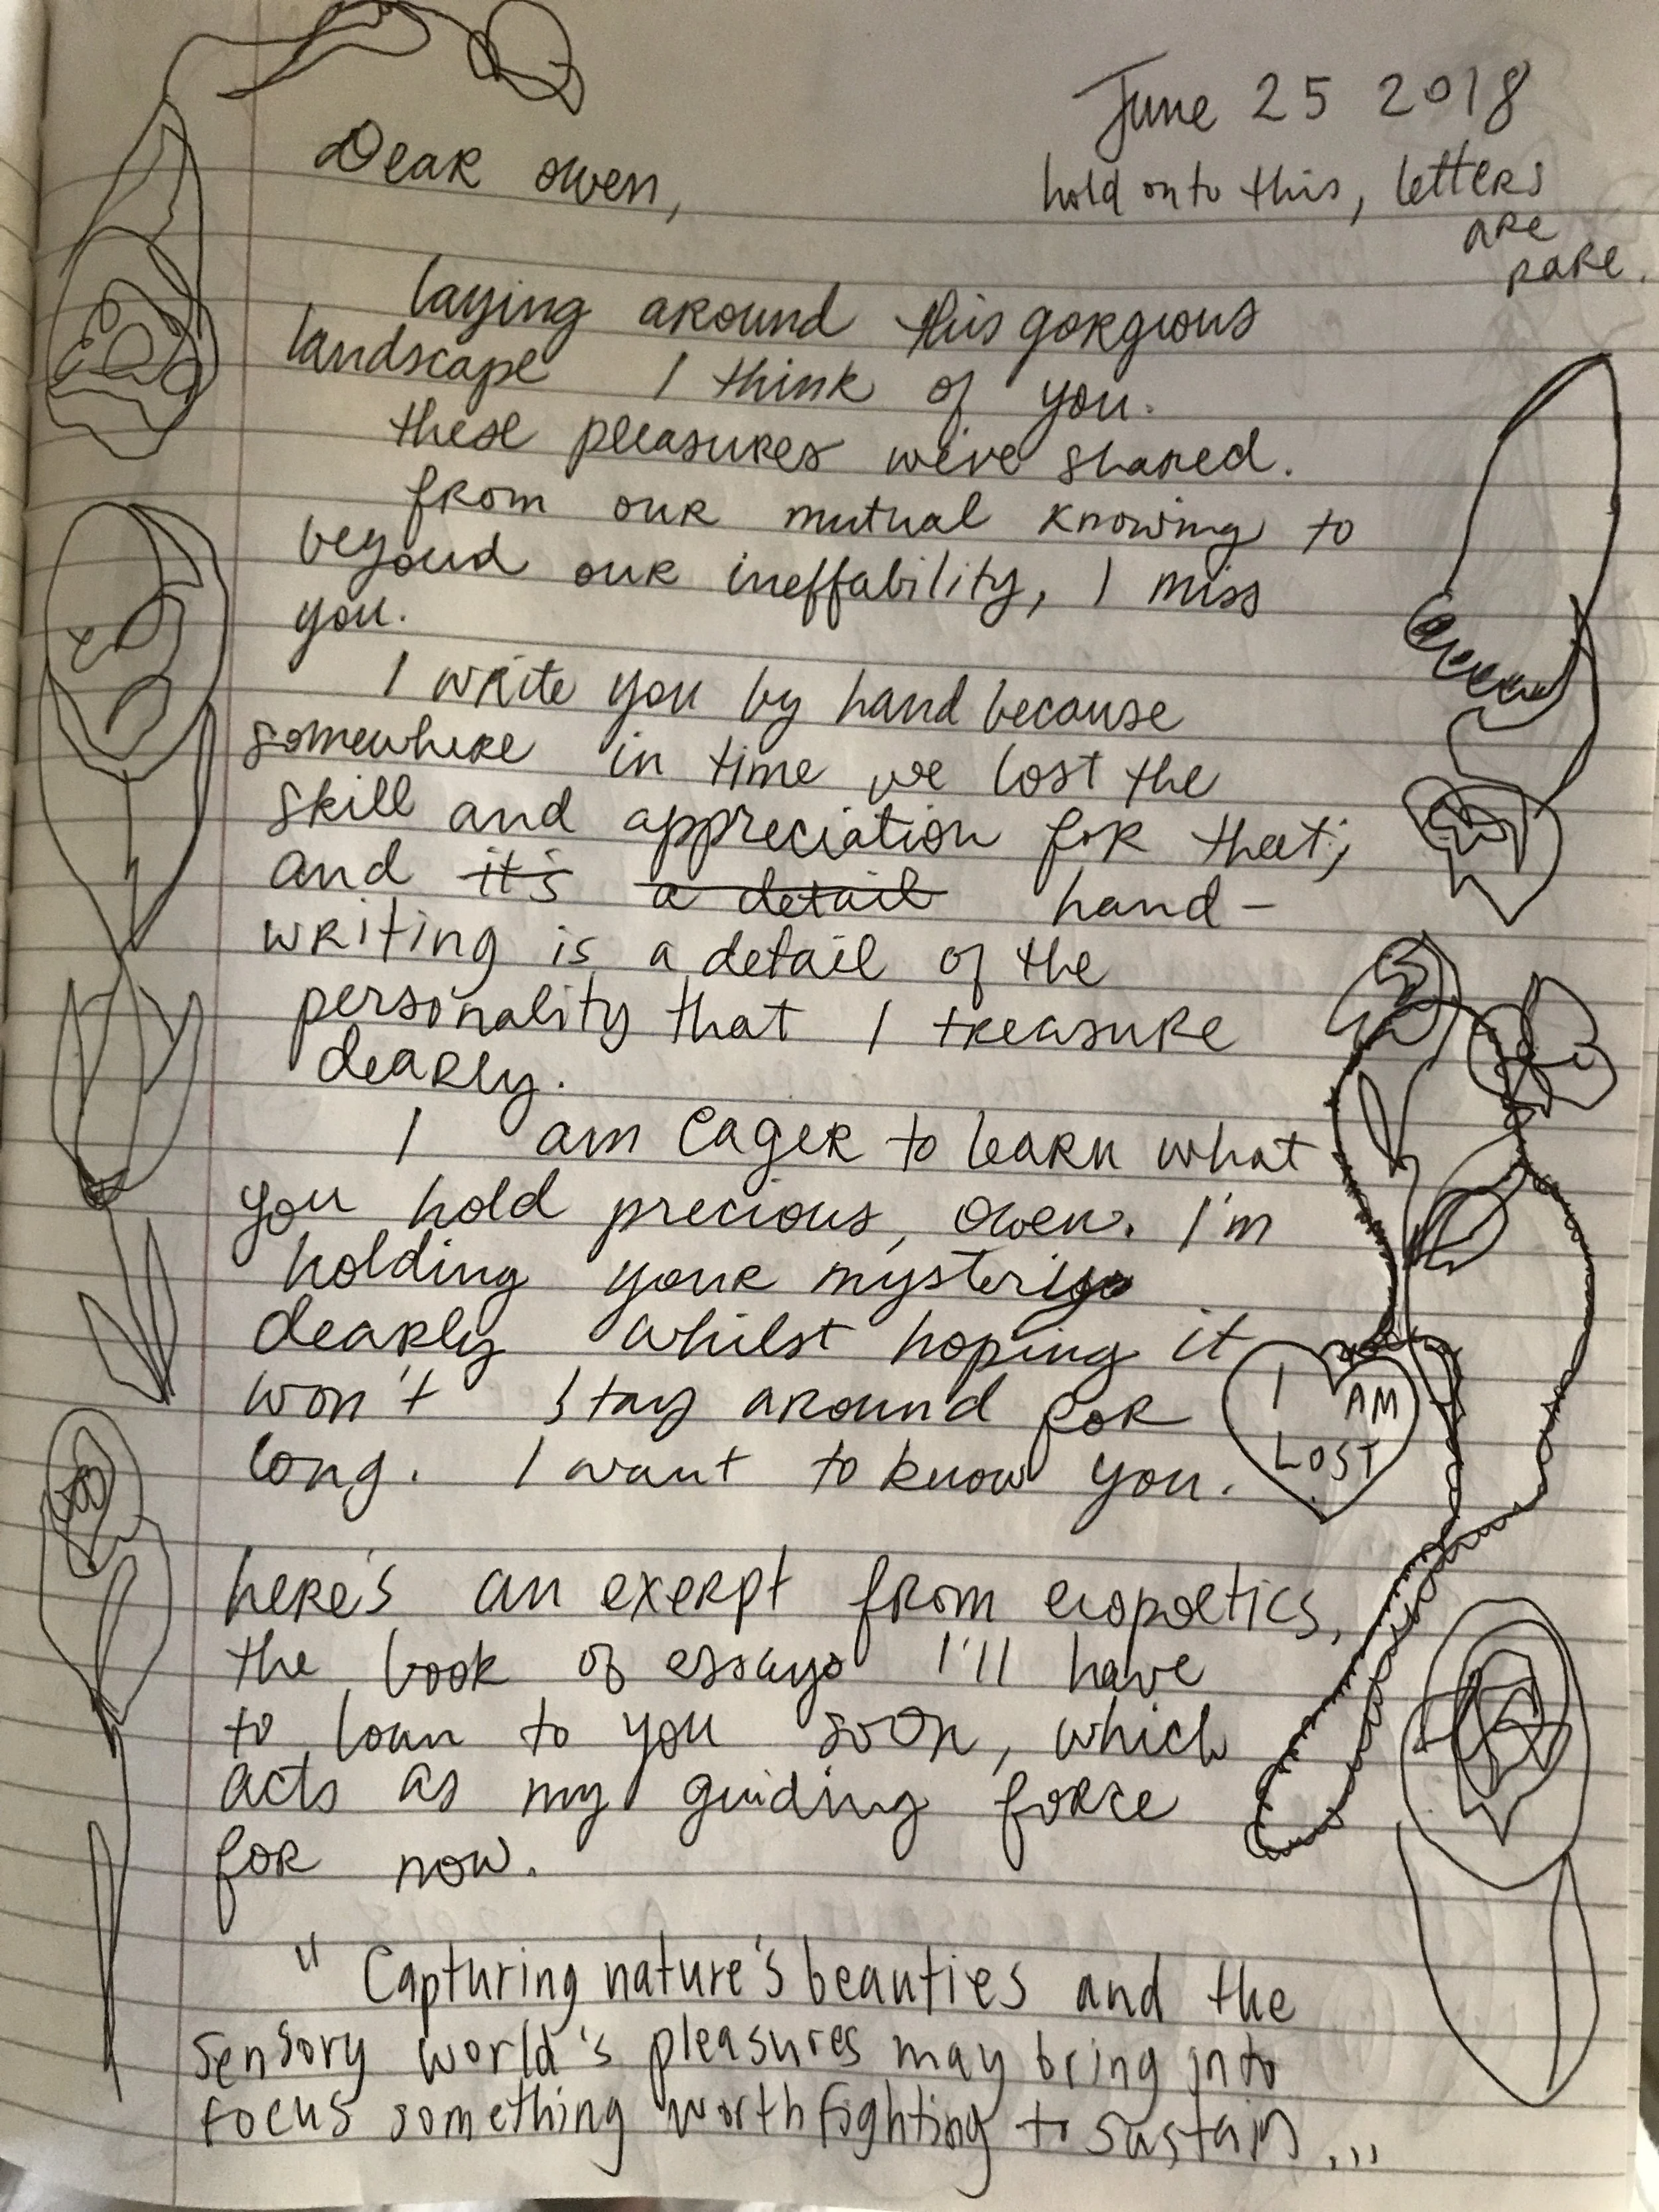 June 25 2018
Dear owen,
hold onto this, letters
are
rare.
laying around this gorgious
landscape I think of you.
these pleasures we've shared.
from our mutual knowing to
beyond our ineffability, I miss
you.
I write you by hand because
somewhere in time we lost the
skill and appreciation for that;
and it's a detail hand-
writing is a detail of the
personality that I treasure
dearly.
I am eager to learn what
you hold precious, owen. I'm
holding your mystery
dearly whilst hoping it
won't stay around for
long. I want to know you.
I AM
LOST
here's an exerpt from ecopoetics,
the book of essays I'll have
to loan to you soon, which
acts as my guiding force
for now.
"Capturing nature's beauties and the
sensory world's pleasures may bring into
focus something worth fighting to sustain...